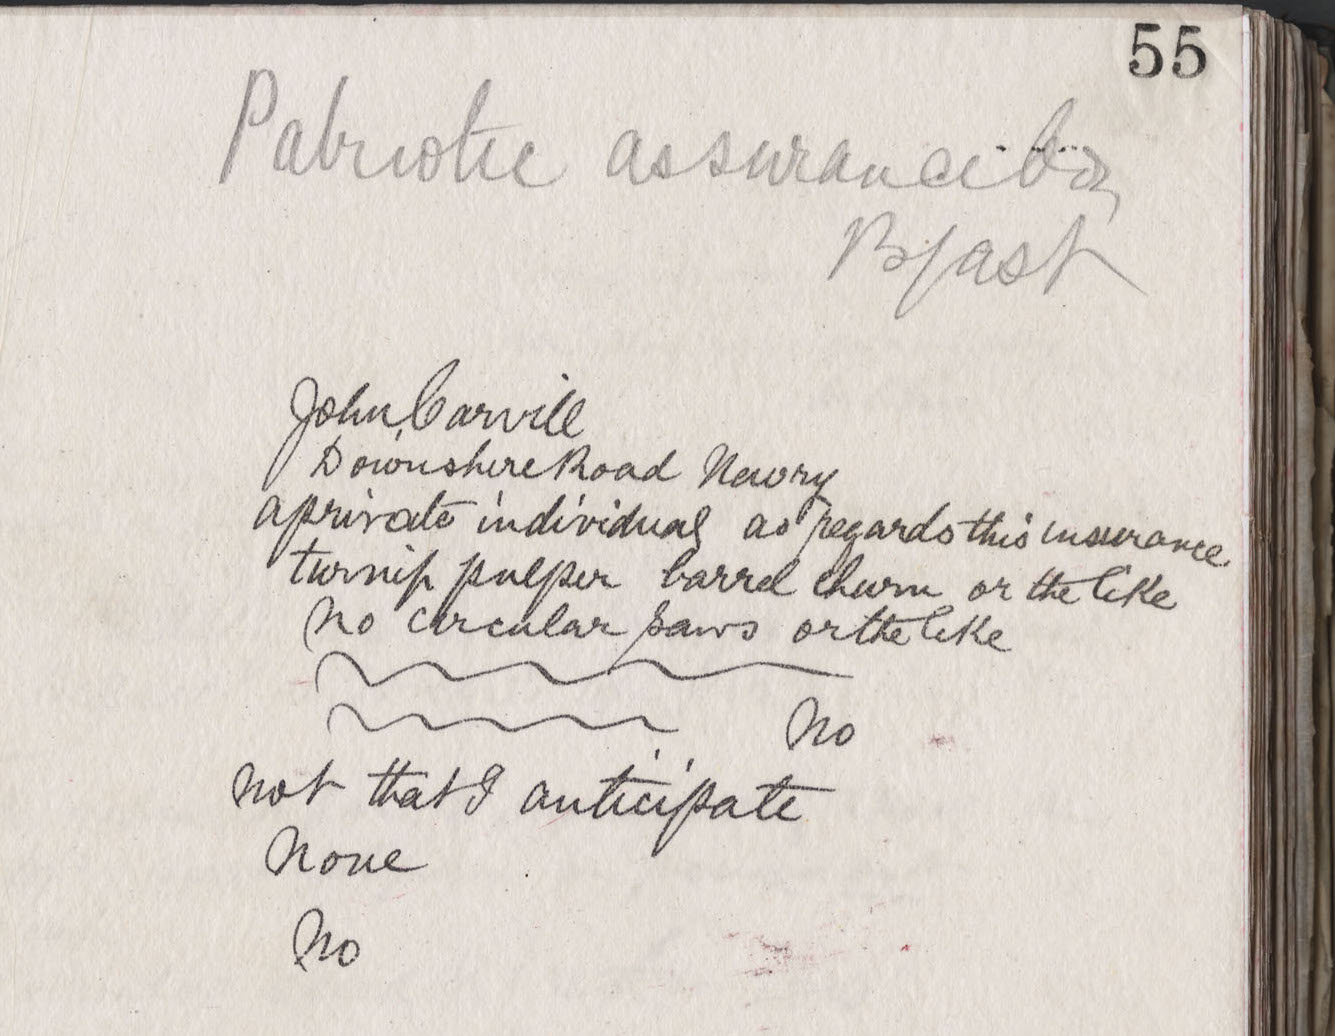 55
Patriotic assurance Co,
Bfast
John Carvill
Downshire Road Newry
a private individual as regards this insurance
turnip pulper barrel churn or the like
No circular saws or the like
No
not that I anticipate
None
No